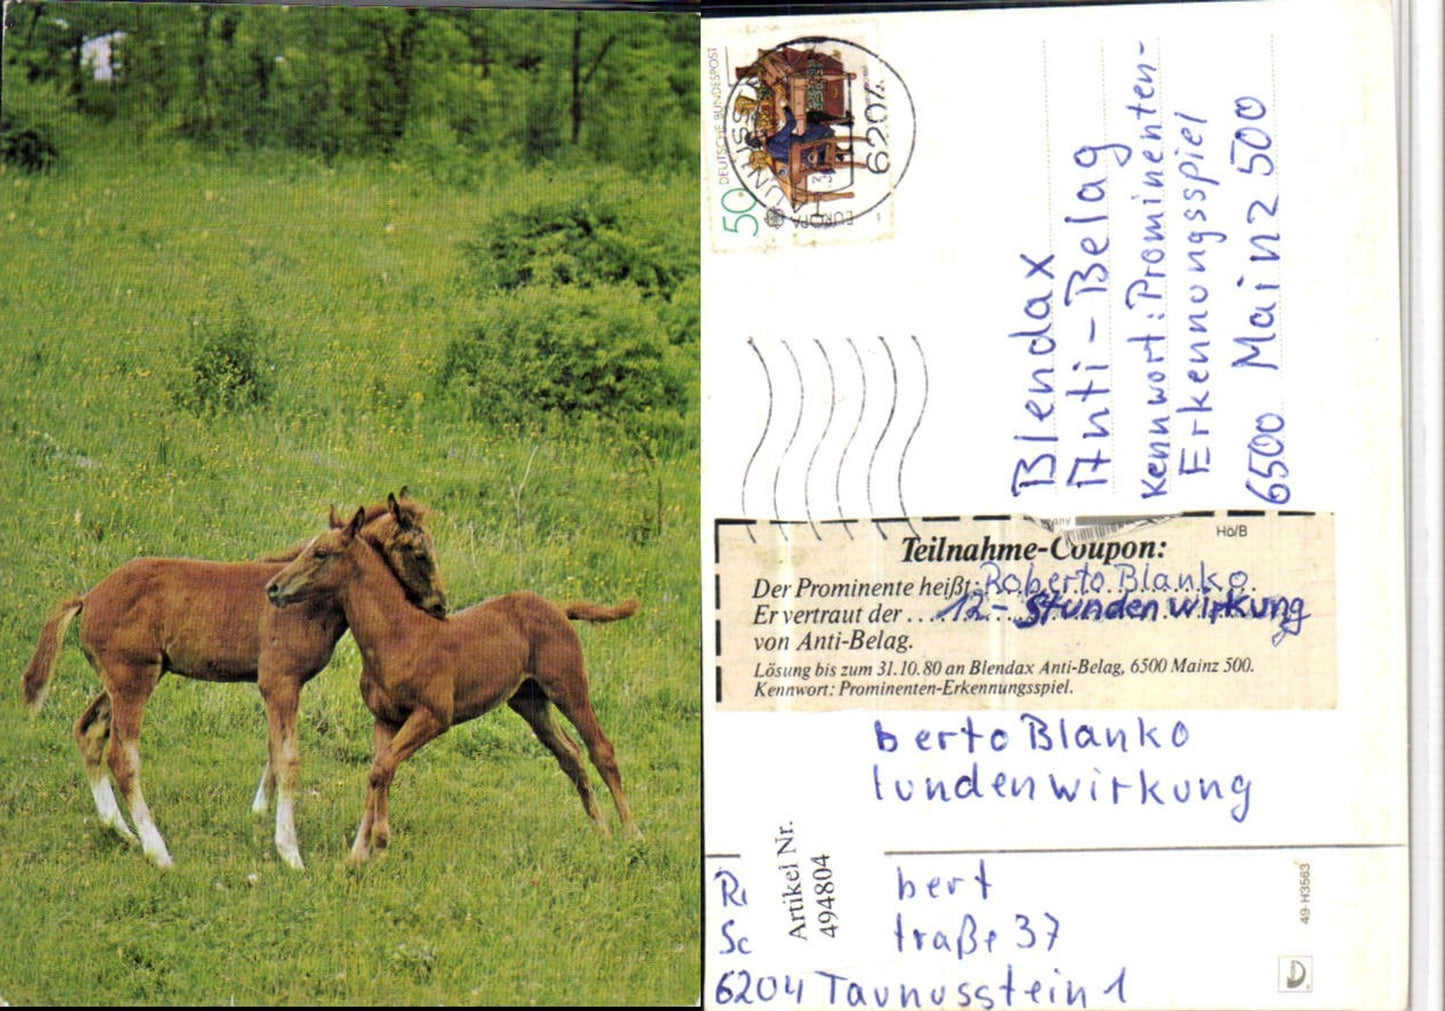 50 DEUTSCHE BUNDESPOST
EUROPA
TAUNUSST
6204
Blendax
Anti-Belag
Kennwort: Prominenten-
Erkennungsspiel
6500 Mainz 500
Teilnahme-Coupon:
Hö/B
Der Prominente heißt: Roberto Blanko
Er vertraut der .... 12-Stundenwirkung
von Anti-Belag.
Lösung bis zum 31.10.80 an Blendax Anti-Belag, 6500 Mainz 500.
Kennwort: Prominenten-Erkennungsspiel.
berto Blanko
tundenwirkung
bert
Sc traße 37
6204 Taunusstein 1
Artikel Nr.
494804
49-H3563